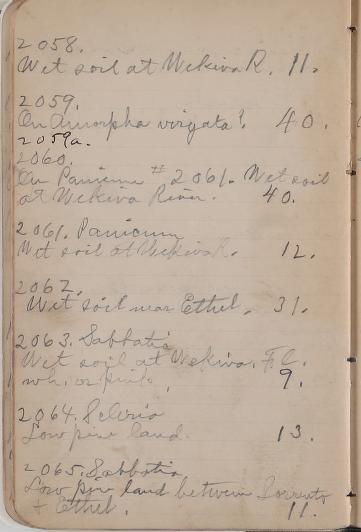 2058.
Wet soil at Wekiva R. 11.
2059.
On Amorpha virgata? 40.
2059a.
2060.
On Panicum # 2061. Wet soil
at Wekiva River. 40.
2061. Panicum
Wet soil at Wekiva R. 12.
2062.
Wet soil near Ethel. 31.
2063. Sabbatia
Wet soil at Wekiva. Fl.
wh. or pink. 9.
2064. Scleria
Low pine land. 13.
2065. Sabbatia
Low pine land between Sorrento
+ Ethel. 11.